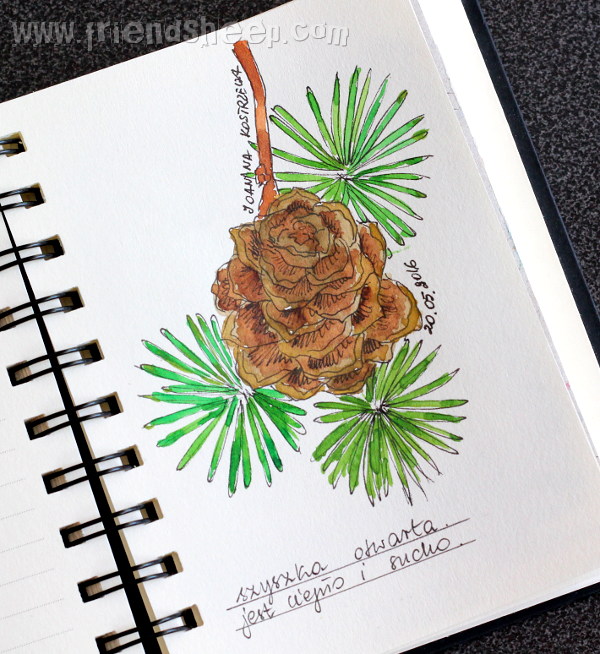 www.friendsheep.com
JOANNA KOSTRZEWA
20.05.2016
szyszka otwarta.
jest ciepło i sucho.